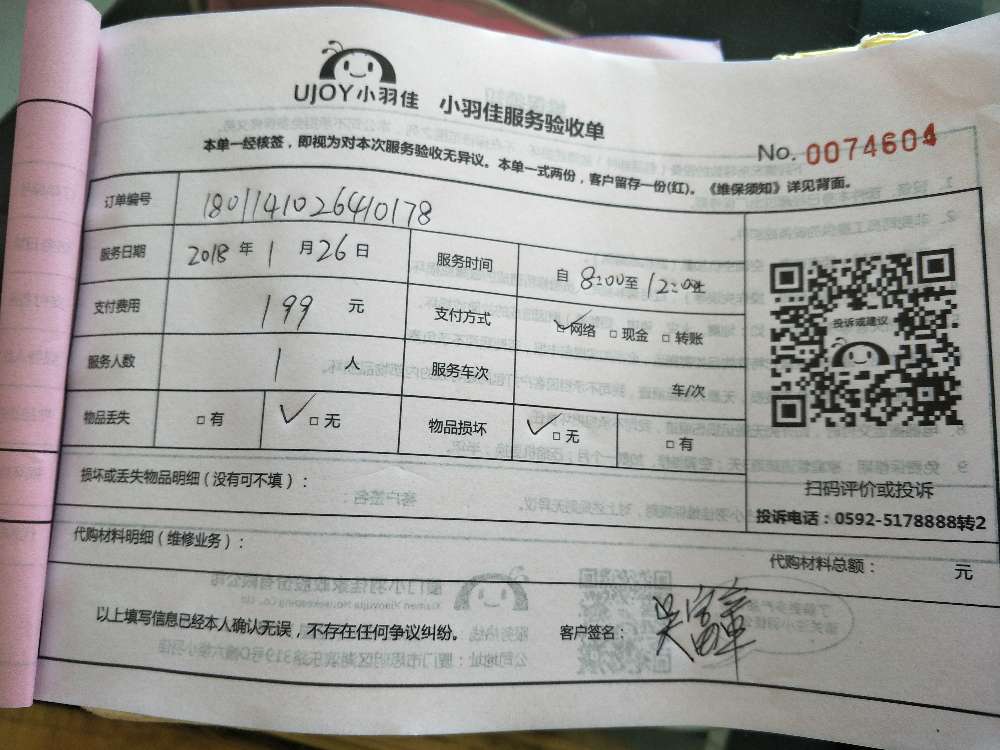 UJOY小羽佳 小羽佳服务验收单
本单一经核签，即视为对本次服务验收无异议。本单一式两份，客户留存一份(红)。《维保须知》详见背面。
No. 0074604
订单编号 180114102640178
服务日期 2018 年 1 月 26 日 服务时间 自 8:00 至 12:00 止
支付费用 199 元 支付方式 ✓□网络 □现金 □转账
服务人数 1 人 服务车次 车/次
物品丢失 □有 ✓□无 物品损坏 ✓□无 □有
投诉或建议
扫码评价或投诉
投诉电话：0592-5178888转2
损坏或丢失物品明细（没有可不填）：
代购材料明细（维修业务）： 代购材料总额： 元
以上填写信息已经本人确认无误，不存在任何争议纠纷。 客户签名：